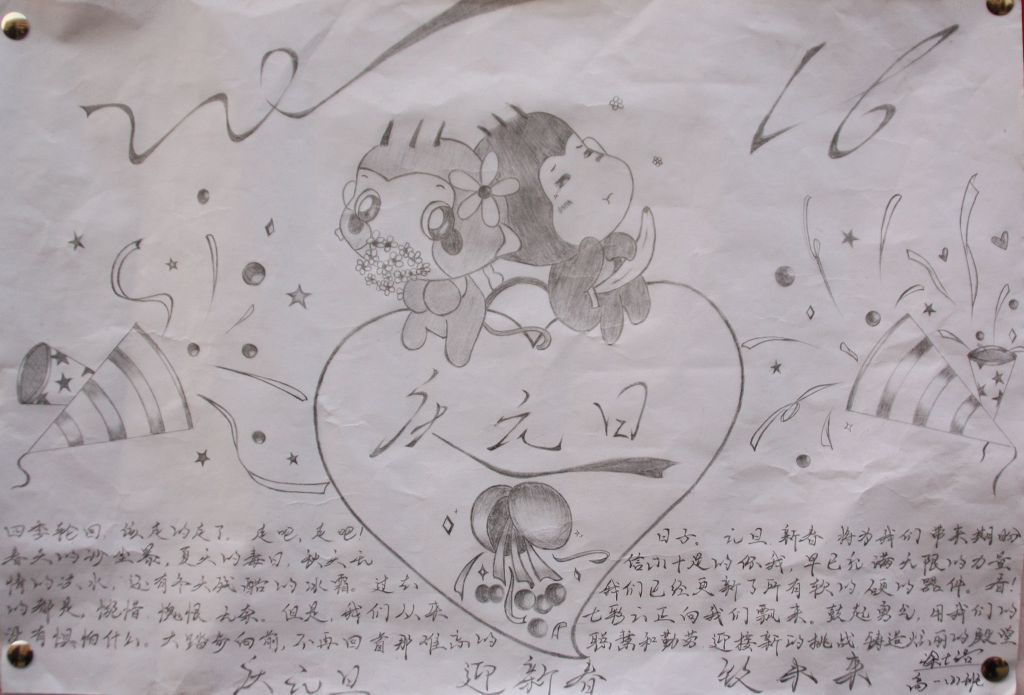 16
庆元旦
四季轮回，该走的走了，走吧，走吧！
春天的沙尘暴，夏天的毒日，秋天无
情的洪水，还有冬天残酷的冰霜。过去
的都是惋惜、惋恨、无奈。但是，我们从来
没有惧怕什么。大踏步向前，不再回首那难忘的
日子。元旦新春将为我们带来期盼
信心十足的你我，早已充满无限的力量
我们已经更新了所有软的硬的器件。看！
七彩云正向我们飘来。鼓起勇气，用我们的
聪慧和勤劳迎接新的挑战铸造炫丽的殿堂
庆元旦 迎新春 致未来
高一